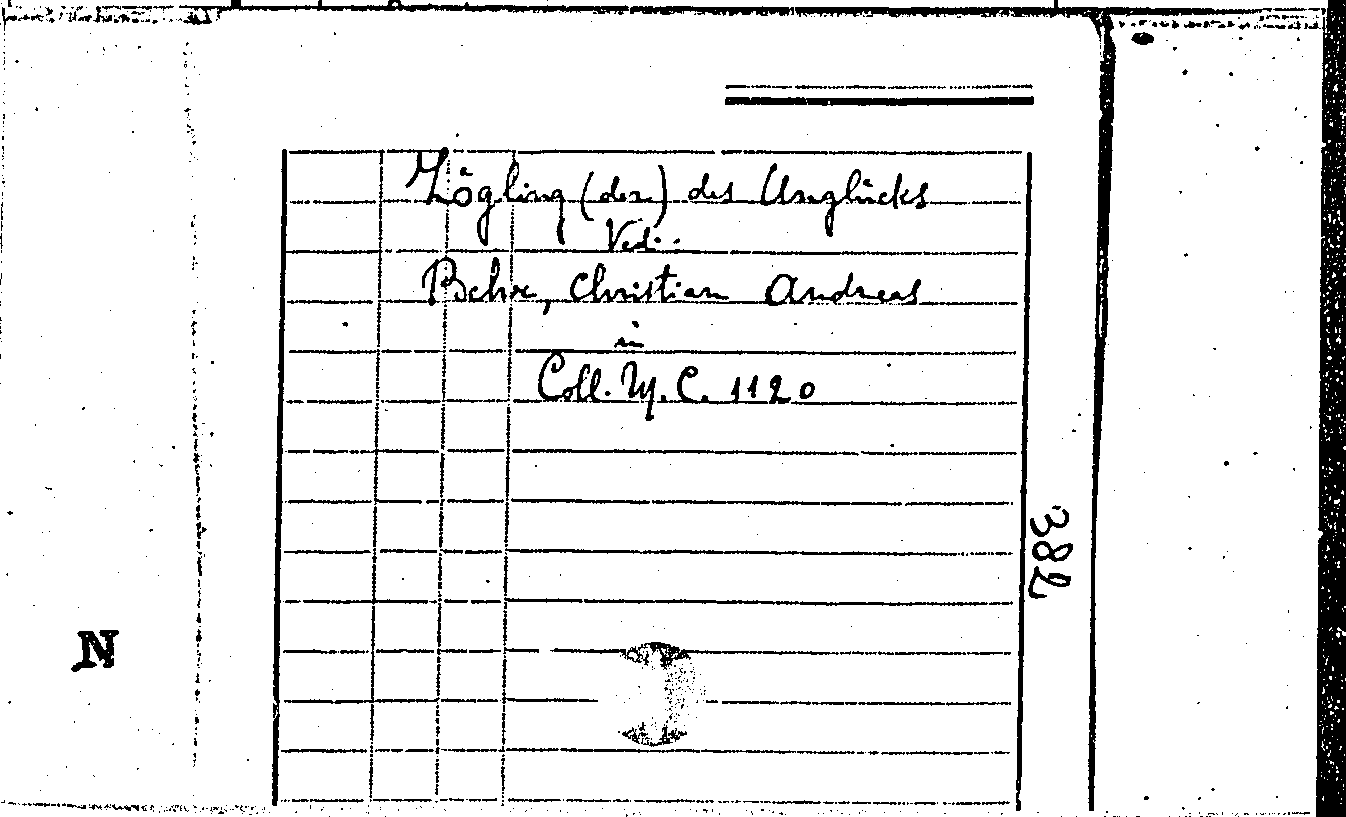 Zögling (der) des Unglücks
Ved:.
Behr, Christian Andreas
in
Coll. M. C. 1120
382
N